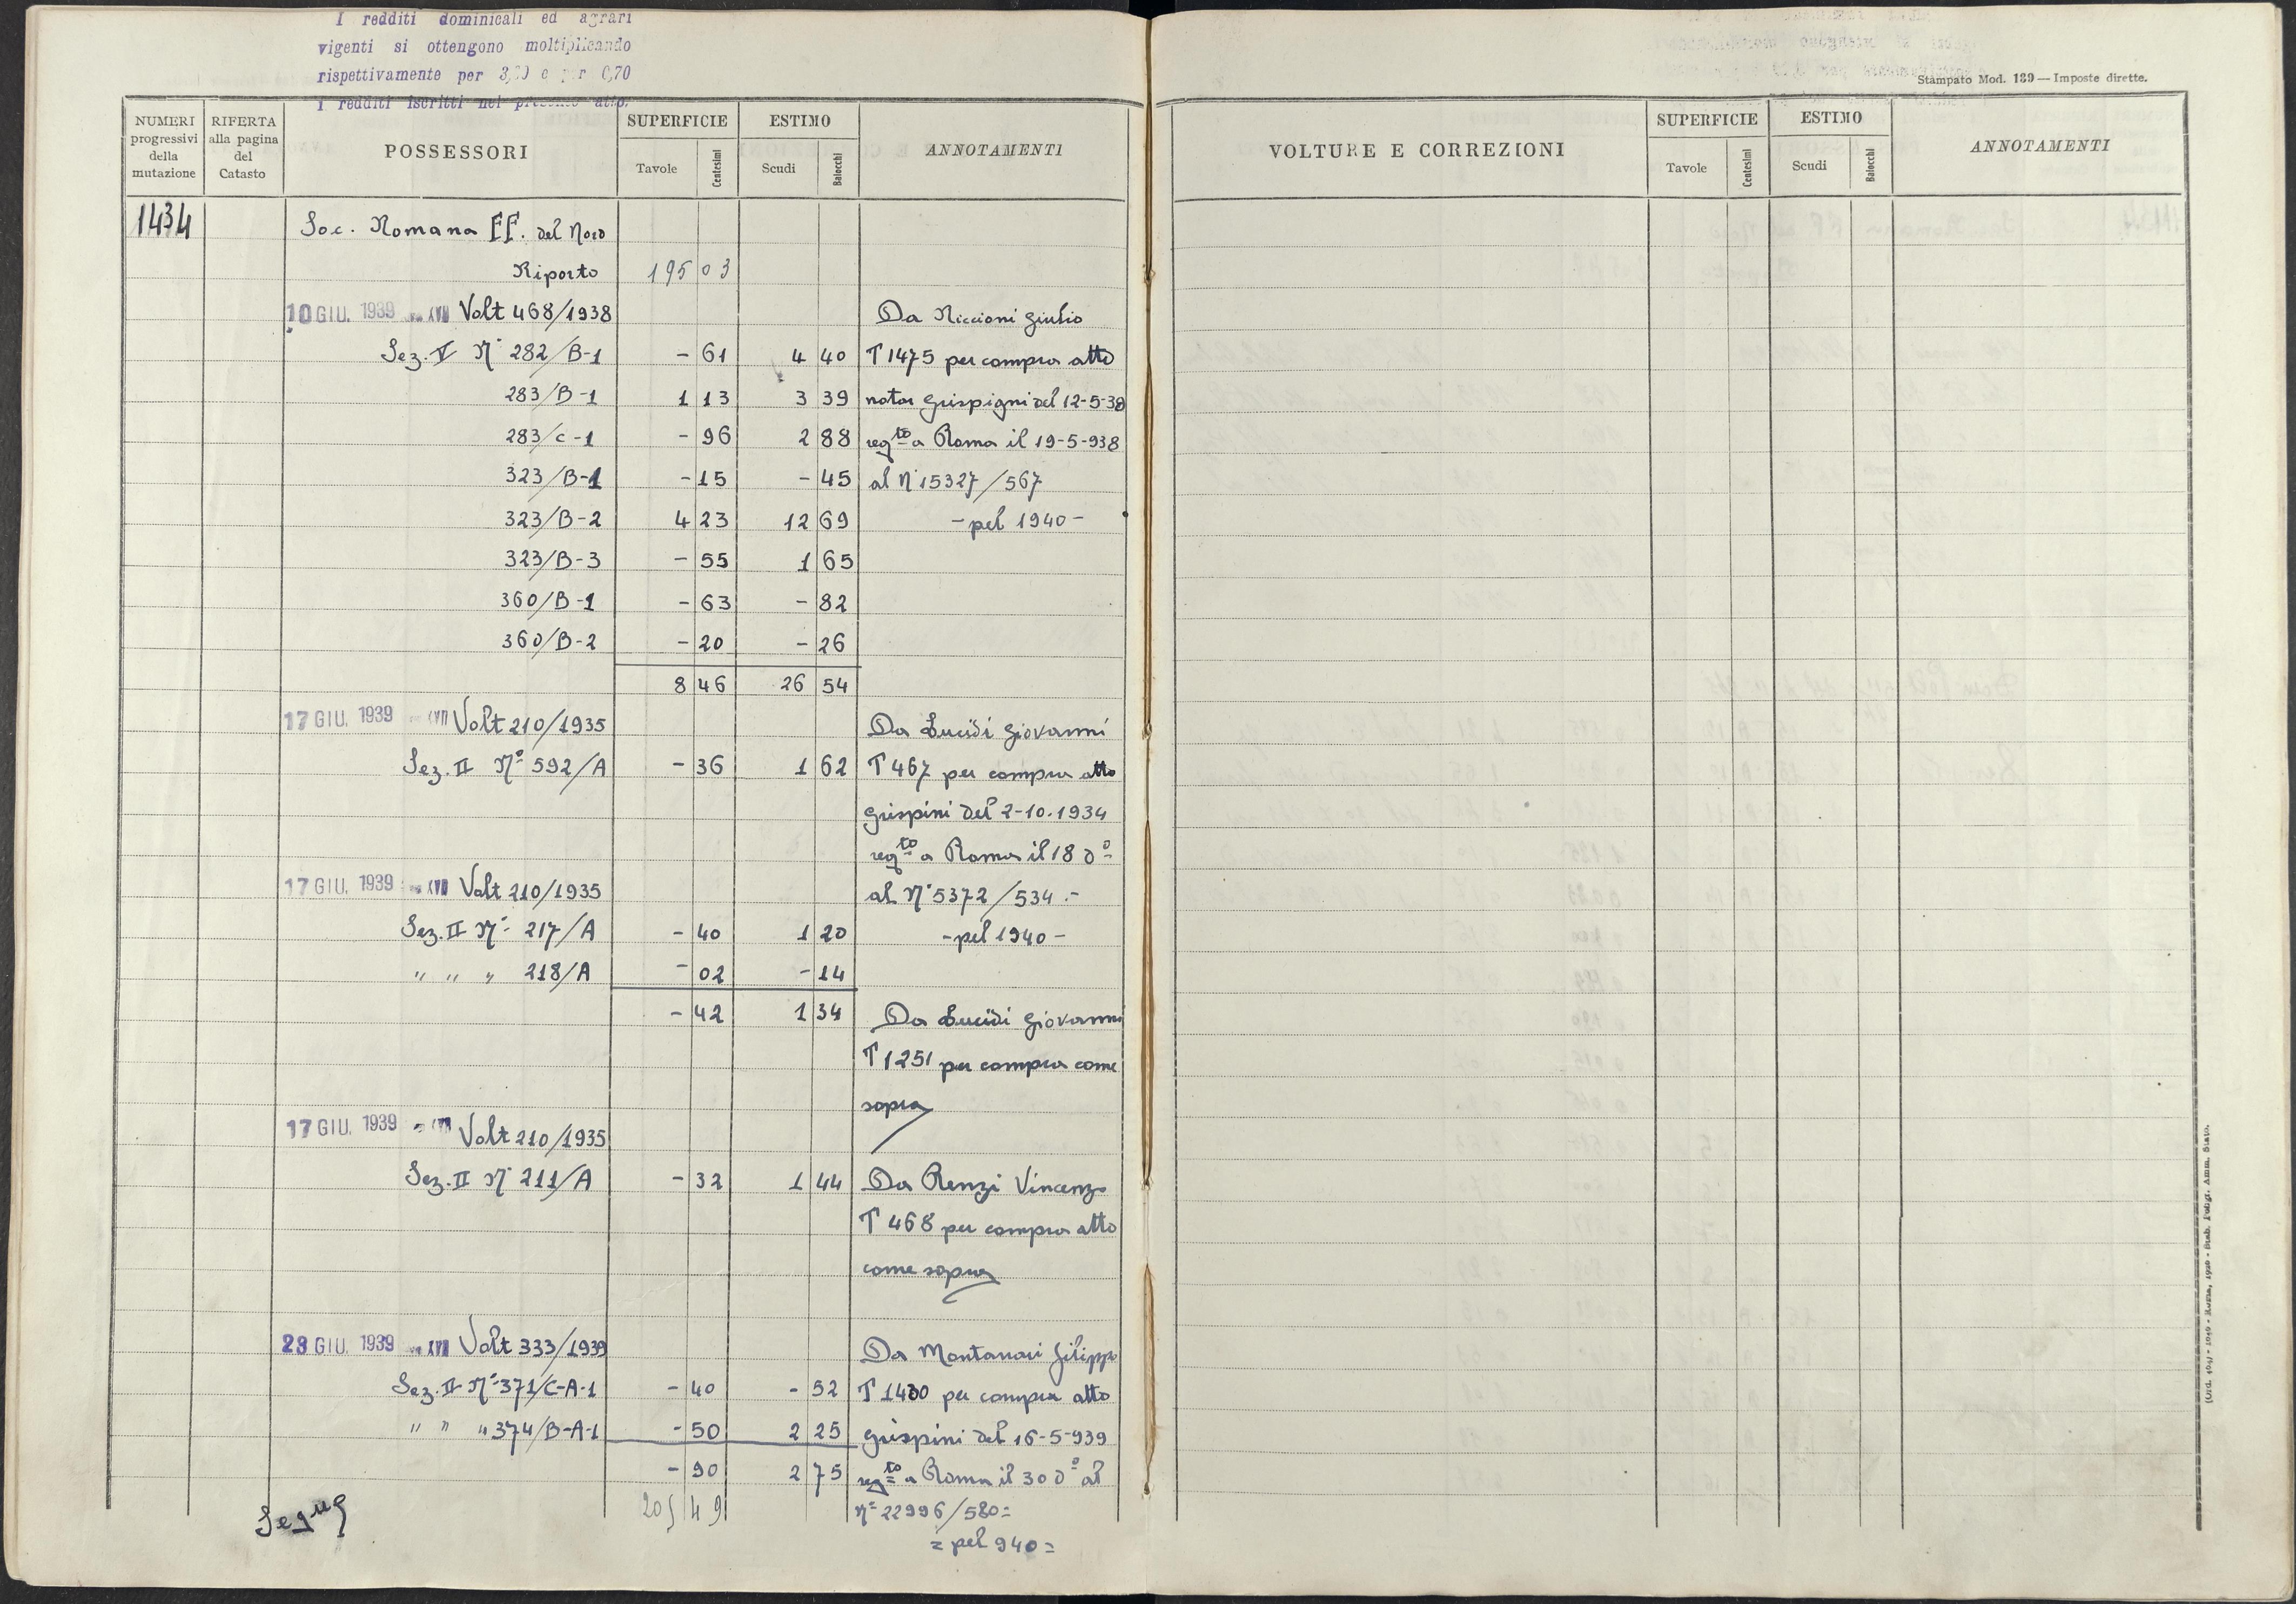 I redditi dominicali ed agrari
vigenti si ottengono moltiplicando
rispettivamente per 3,20 e per 0,70
i redditi iscritti nel presente atto.
Stampato Mod. 139 — Imposte dirette.
NUMERI progressivi della mutazione
RIFERTA alla pagina del Catasto
POSSESSORI
SUPERFICIE
Tavole Centesimi
ESTIMO
Scudi Baiocchi
ANNOTAMENTI
VOLTURE E CORREZIONI
SUPERFICIE
Tavole Centesimi
ESTIMO
Scudi Baiocchi
ANNOTAMENTI
1434 Soc. Romana FF. del Nord
Riporto 195 03
10 GIU. 1939 XVII Volt 468/1938 Da Riccioni Giulio
Sez. V N° 282/B-1 - 61 4 40 T 1475 per compra atto
283/B-1 1 13 3 39 notar Grispigni del 12-5-38
283/C-1 - 96 2 88 regto a Roma il 19-5-938
323/B-1 - 15 - 45 al N° 15327/567
323/B-2 4 23 12 69 - pel 1940 -
323/B-3 - 55 1 65
360/B-1 - 63 - 82
360/B-2 - 20 - 26
8 46 26 54
17 GIU. 1939 XVII Volt 210/1935 Da Lucidi Giovanni
Sez. II N° 592/A - 36 1 62 T 467 per compra atto
Grispini del 2-10-1934
regto a Roma il 18 do
17 GIU. 1939 XVII Volt 210/1935 al N° 5372/534.-
Sez. II N° 217/A - 40 1 20 - pel 1940 -
" " " 218/A - 02 - 14
- 42 1 34 Da Lucidi Giovanni
T 1251 per compra come
sopra
17 GIU. 1939 Volt 210/1935
Sez. II N° 211/A - 32 1 44 Da Renzi Vincenzo
T 468 per compra atto
come sopra
23 GIU. 1939 XVII Volt 333/1939 Da Montanari Filippo
Sez. II N° 371/C-A-1 - 40 - 52 per compra atto
" " " 374/B-A-1 - 50 2 25 Grispini del 16-5-939
- 90 2 75 regto a Roma il 30 do al
205 49 N° 22996/580=
= pel 940 =
Segue